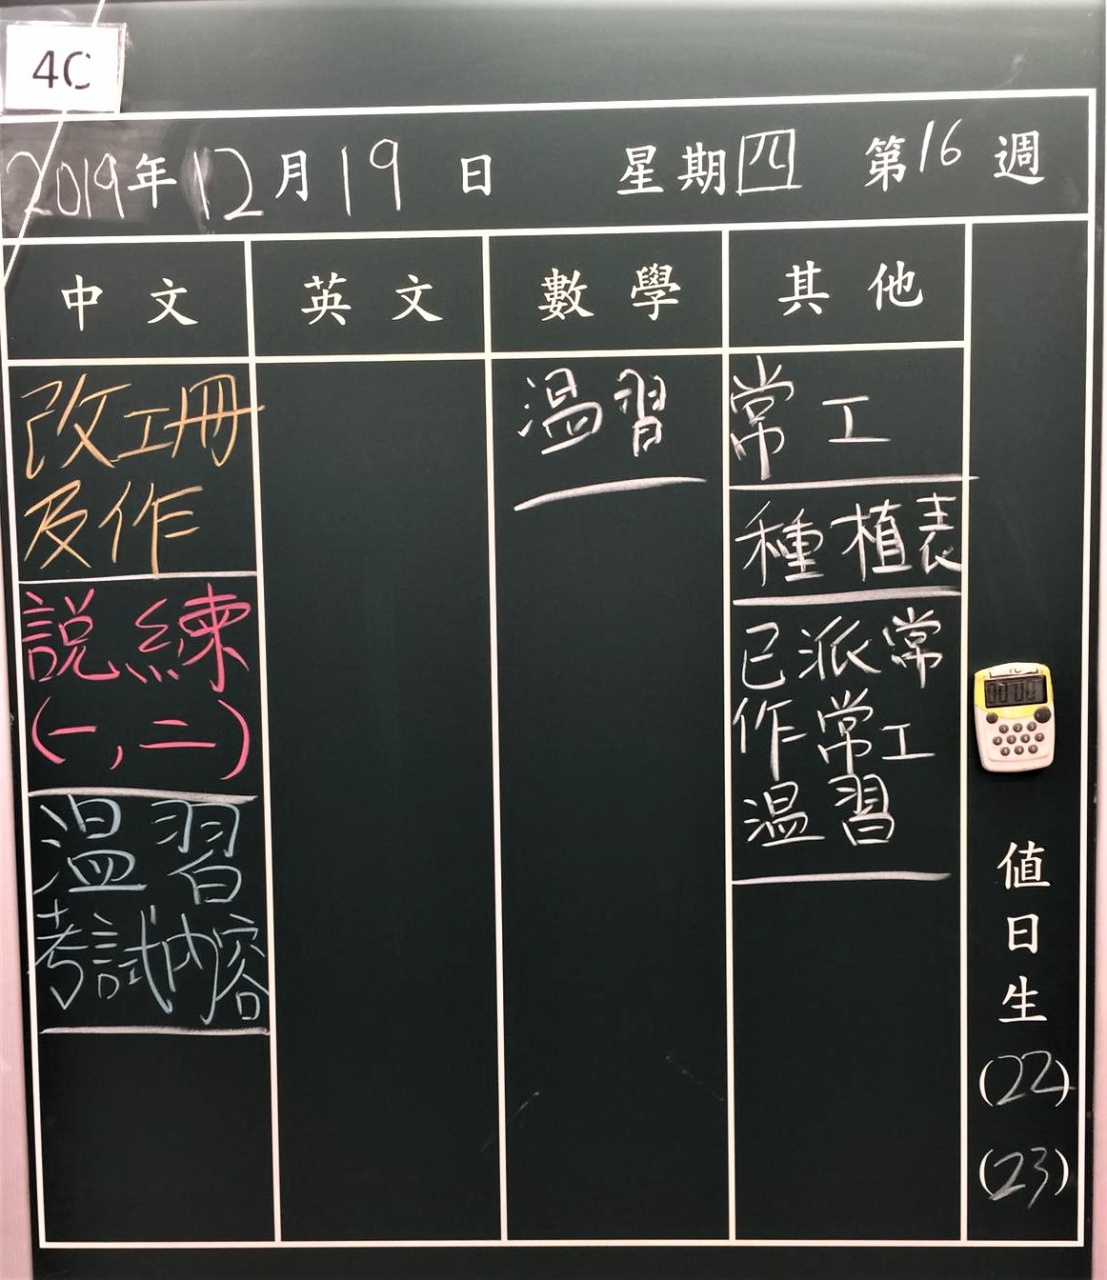 4C
2019年12月19日 星期四 第16週
中文 英文 數學 其他
改工冊
及作
説練
(一,二)
温習
考試內容
温習
常工
種植表
已派常
作常工
温習
值日生
(22)
(23)